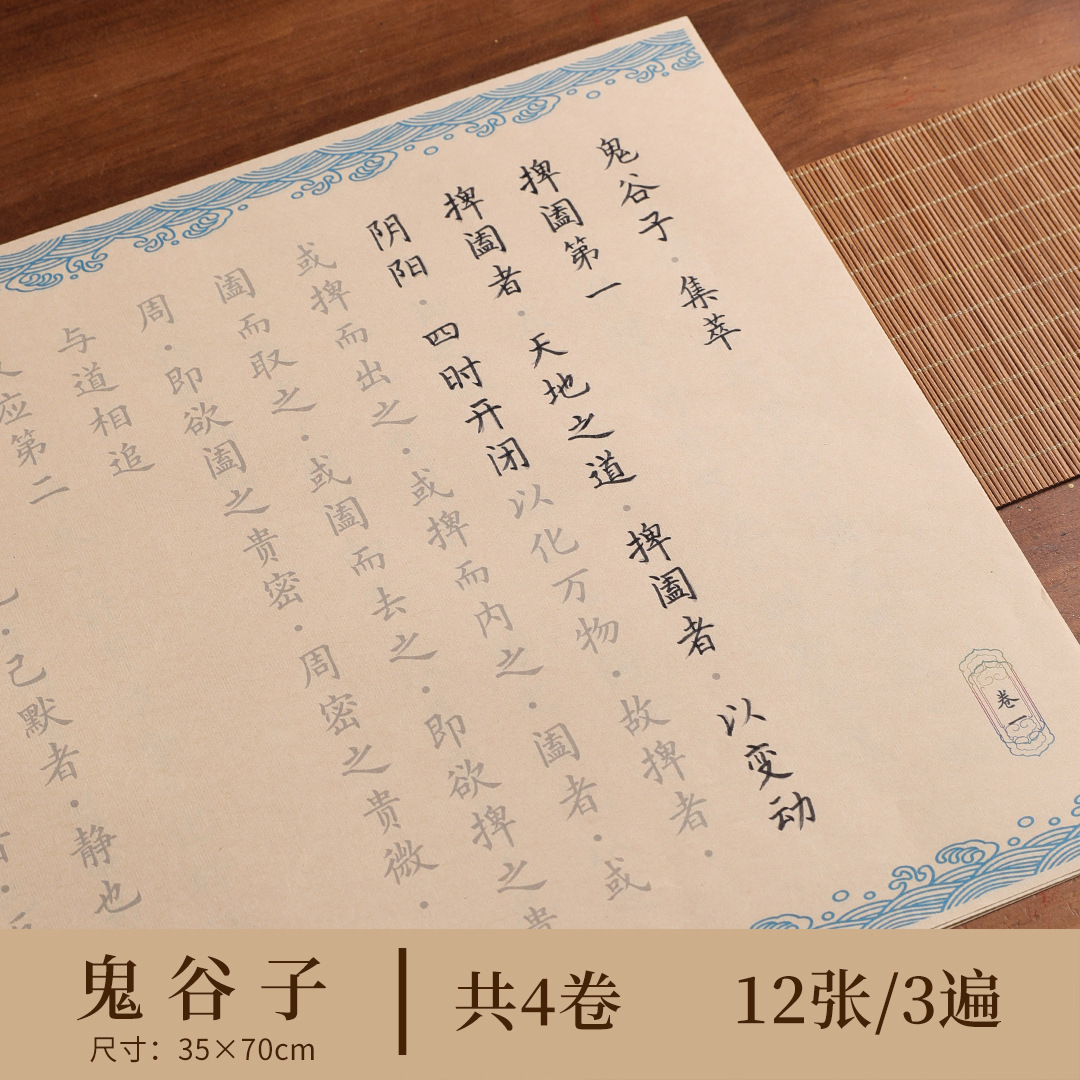 鬼谷子·集萃
捭阖第一
捭阖者·天地之道·捭阖者·以变动
阴阳·四时开闭以化万物·故捭者·
或捭而出之·或捭而内之·阖者·或
阖而取之·或阖而去之·即欲捭之贵
周·即欲阖之贵密·周密之贵微·
与道相追
应第二
·己默者·静也
卷一
鬼谷子
尺寸：35×70cm
共4卷
12张/3遍